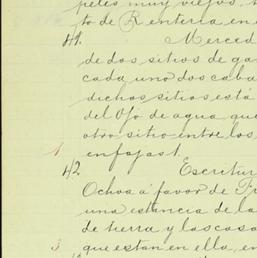 peles muy viejos
to de Renteria en
41. Merced
de dos sitios de ga
cada uno dos caba
dichos sitios está
del Ojo de agua que
otro sitio entre los
1 enfajast.
42 Escritur
Ochoa á favor de Fr
una estancia de la
de tierra y las casa
3 que estan en ella, en